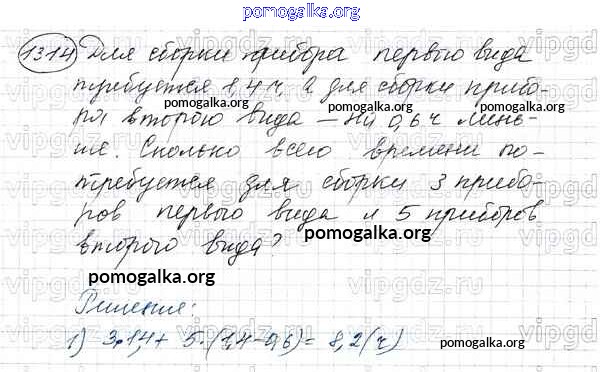 pomogalka.org
1314 Для сборки прибора первого вида
требуется 1,4 ч, а для сборки прибо-
ра второго вида – на 0,6 ч мень-
ше. Сколько всего времени по-
требуется для сборки 3 прибо-
ров первого вида и 5 приборов
второго вида?
pomogalka.org
pomogalka.org
pomogalka.org
pomogalka.org
pomogalka.org
Решение:
1) 3·1,4 + 5·(1,4-0,6) = 8,2 (ч)